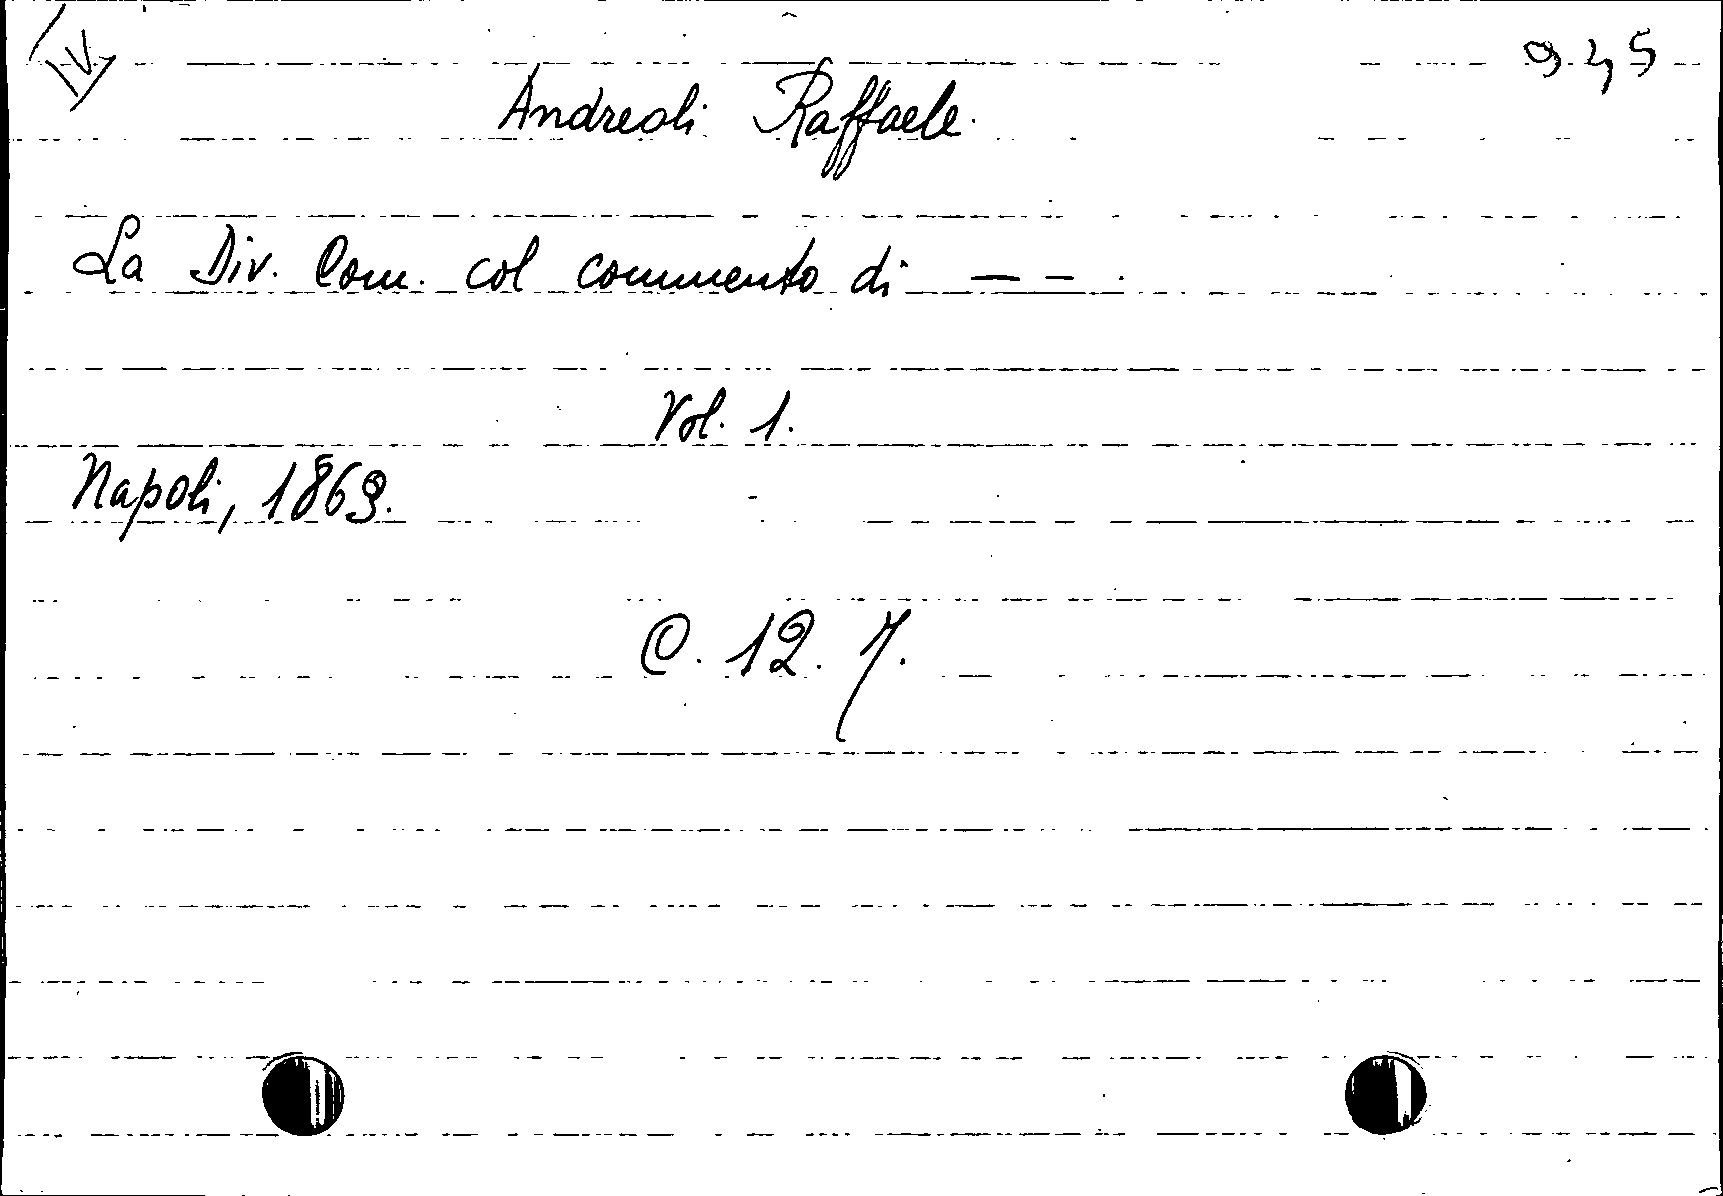 IV
945
Andreoli Raffaele.
La Div. Com. col commento di — — .
Vol. 1.
Napoli, 1869.
C. 12. 7.